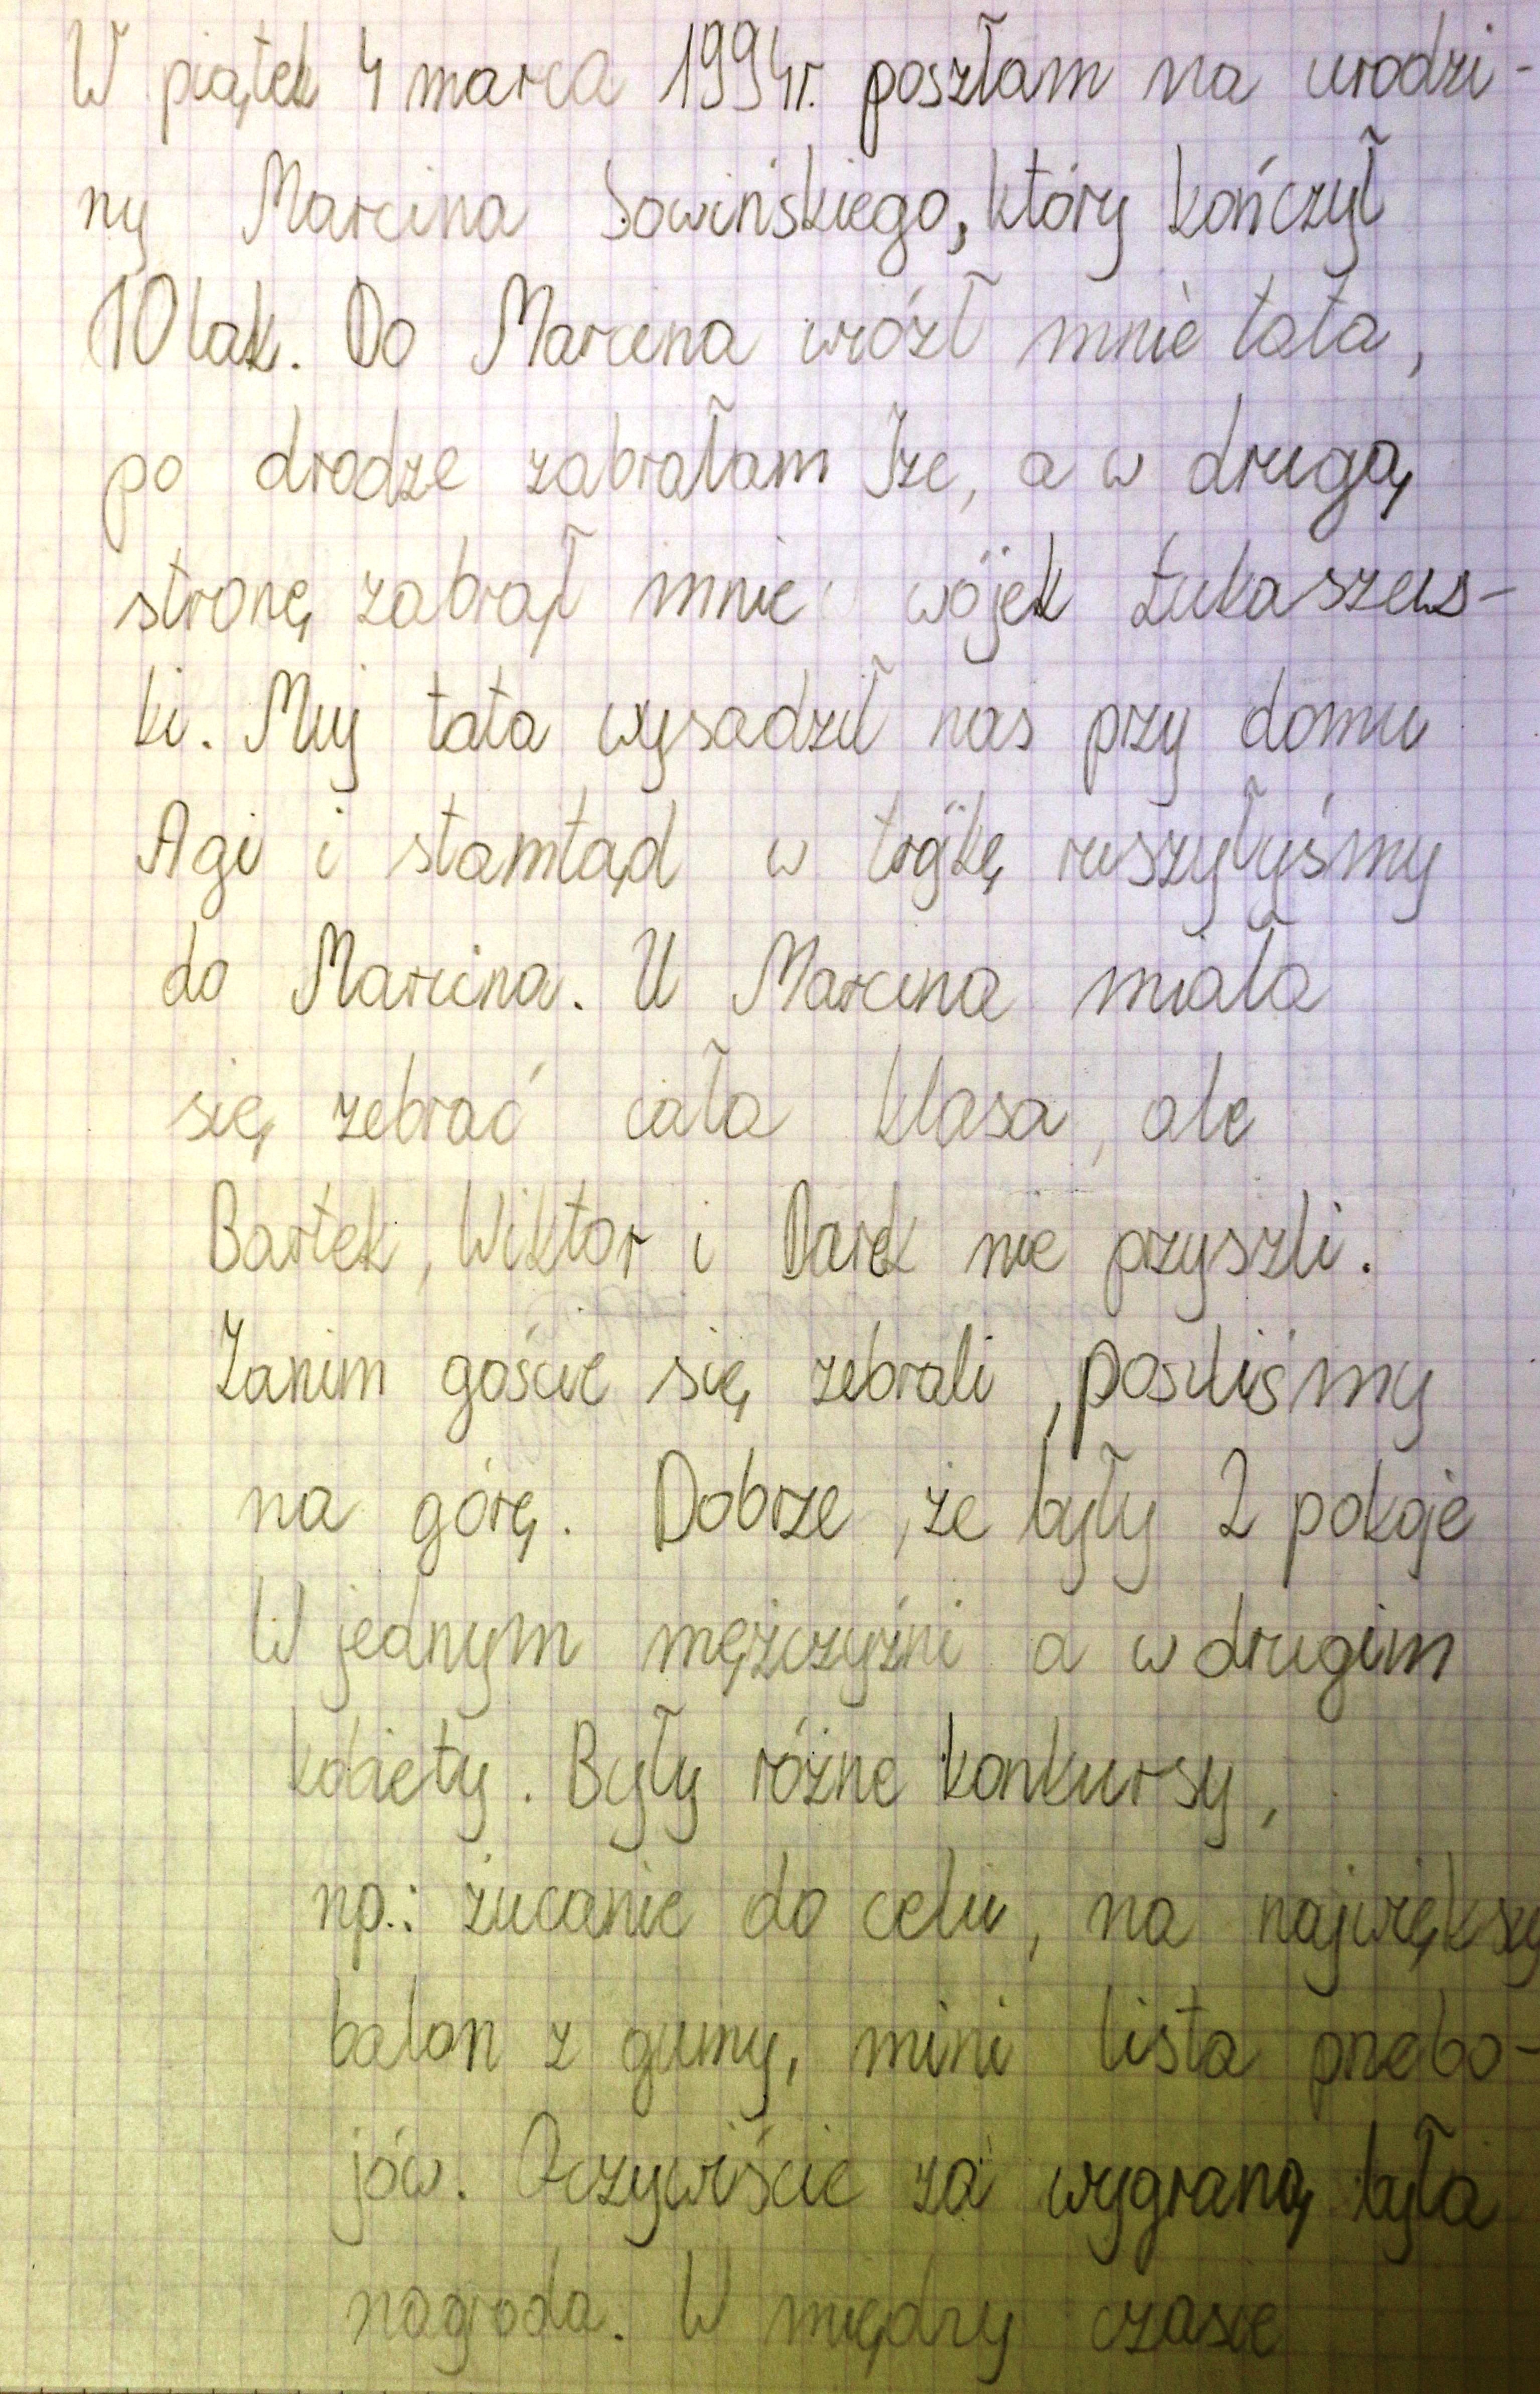 W piątek 4 marca 1994r. poszłam na urodzi-
ny Marcina Sowińskiego, który kończył
10 lak. Do Marcina wiózł mnie tata,
po drodze zabrałam Ize, a w drugą
stronę zabrał mnie wójek Łukaszews-
ki. Muj tata wysadził nas przy domu
Agi i stamtąd w trójkę ruszyłyśmy
do Marcina. U Marcina miała
się zebrać cała klasa, ale
Bartek, Wiktor i Darek nie przyszli.
Zanim goście się zebrali, poszliśmy
na górę. Dobrze, że były 2 pokoje
W jednym mężczyźni a w drugim
kobiety. Były różne konkursy,
np.: żucanie do celu, na najwięksy
balon z gumy, mini lista przebo-
jów. Oczywiście za wygraną była
nagroda. W między czasie